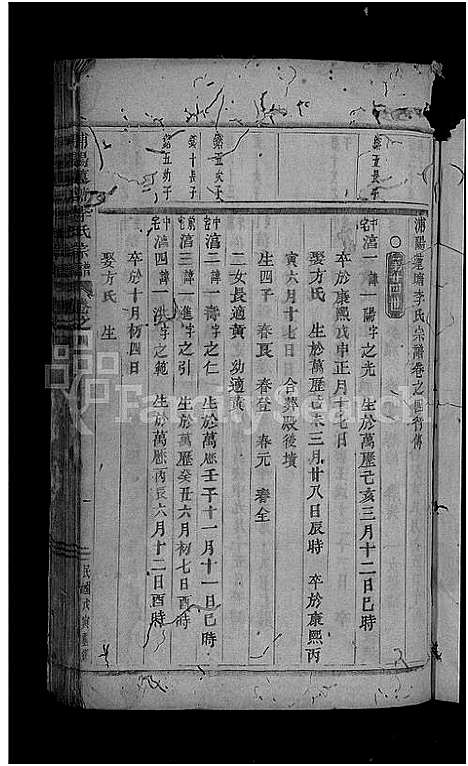 浦陽蓮塘李氏宗譜卷之四智傳
中宅 滔一 諱一陽字之先 生於萬歷己亥三月十二日巳時
卒於康熙戊申正月十七日
娶方氏 生於萬歷己未三月廿八日辰時 卒於康熙丙
寅六月十七日 合葬殿後墳
生四子 春良 春登 春元 春全
二女長適黃 幼適黃
中宅 滔二 諱一濤字之仁 生於萬歷壬子十一月十一日巳時
前宅 滔三 諱一進字之引 生於萬歷癸丑六月初七日酉時
中宅 滔四 諱一洪字之範 生於萬歷丙辰六月十二日酉時
卒於十月初四日
娶方氏 生
五長子
五次子
十長子
五幼子
李氏宗譜
卷之四
一
民國戊寅重修
FamilySearch